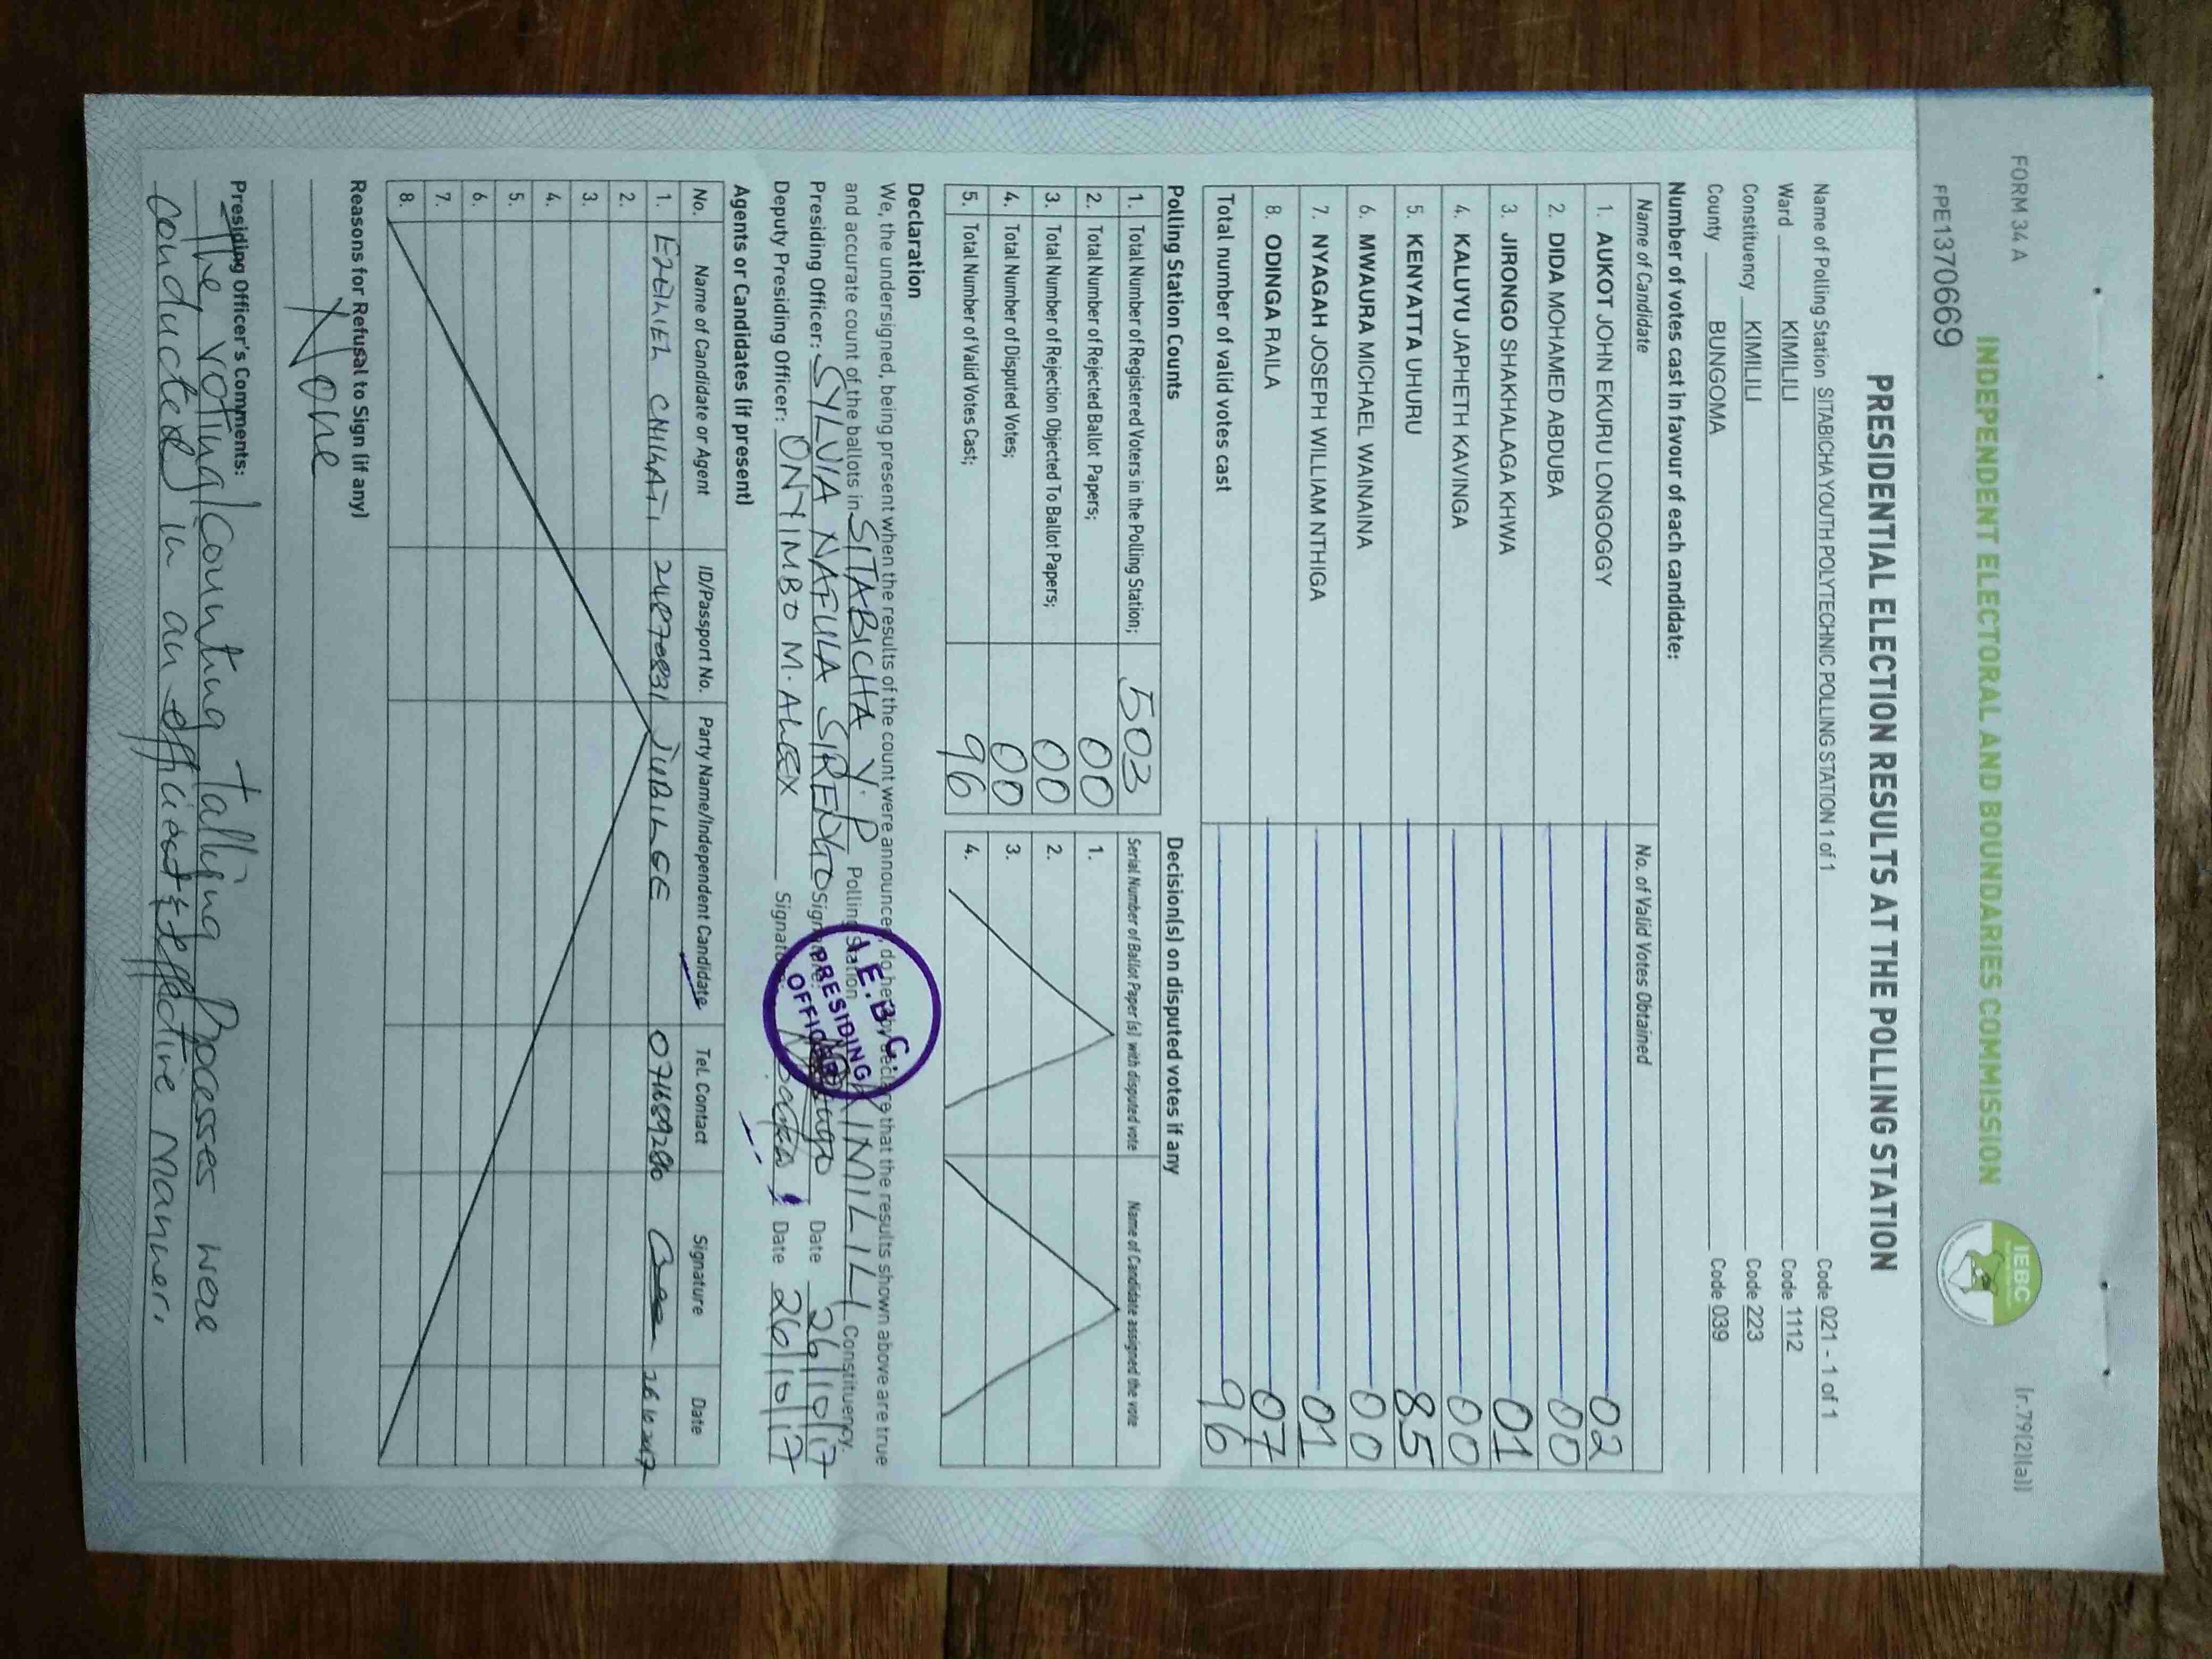 FORM 34 A
[r.79(2)(a)]
INDEPENDENT ELECTORAL AND BOUNDARIES COMMISSION
IEBC
FPE1370669
PRESIDENTIAL ELECTION RESULTS AT THE POLLING STATION
Name of Polling Station SITABICHA YOUTH POLYTECHNIC POLLING STATION 1 of 1 Code 021 - 1 of 1
Ward KIMILILI Code 1112
Constituency KIMILILI Code 223
County BUNGOMA Code 039
Number of votes cast in favour of each candidate:
Name of Candidate No. of Valid Votes Obtained
1. AUKOT JOHN EKURU LONGOGGY 02
2. DIDA MOHAMED ABDUBA 00
3. JIRONGO SHAKHALAGA KHWA 01
4. KALUYU JAPHETH KAVINGA 00
5. KENYATTA UHURU 85
6. MWAURA MICHAEL WAINAINA 00
7. NYAGAH JOSEPH WILLIAM NTHIGA 01
8. ODINGA RAILA 07
Total number of valid votes cast 96
Polling Station Counts
1. Total Number of Registered Voters in the Polling Station; 503
2. Total Number of Rejected Ballot Papers; 00
3. Total Number of Rejection Objected To Ballot Papers; 00
4. Total Number of Disputed Votes; 00
5. Total Number of Valid Votes Cast; 96
Decision(s) on disputed votes if any
Serial Number of Ballot Paper (s) with disputed vote Name of Candidate assigned the vote
1.
2.
3.
4.
Declaration
We, the undersigned, being present when the results of the count were announced, do hereby declare that the results shown above are true
and accurate count of the ballots in SITABICHA Y.P Polling Station KIMILILI Constituency.
Presiding Officer: SYLVIA NAFULA SIRENGO Signature: Date 26/10/17
Deputy Presiding Officer: ONYIMBO M. ALEX Signature: Date 26/10/17
I.E.B.C.
PRESIDING
OFFICER
Agents or Candidates (if present)
No. Name of Candidate or Agent ID/Passport No. Party Name/Independent Candidate Tel. Contact Signature Date
1. EZEKIEL 24870831 JUBILEE 0716892 26
2.
3.
4.
5.
6.
7.
8.
Reasons for Refusal to Sign (if any)
None
Presiding Officer's Comments:
The voting/Counting Tallying Processes were
conducted in an efficient & effective manner.